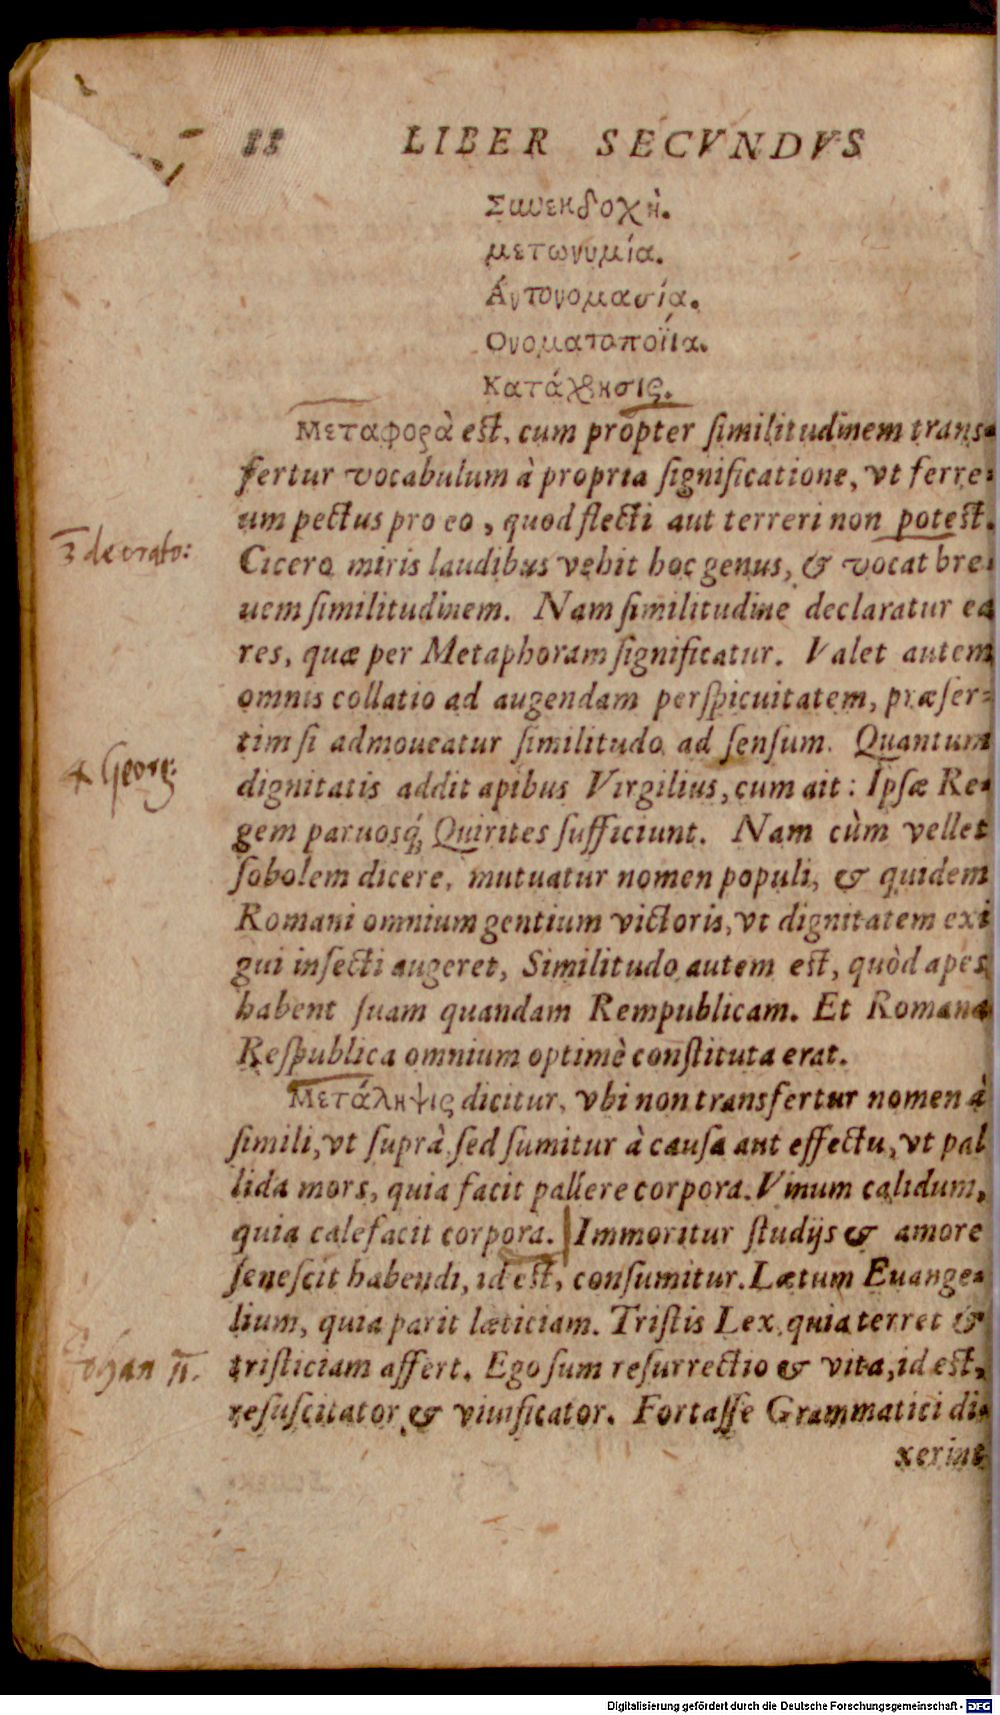 88 LIBER SECVNDVS
Συνεκδοχὴ.
μετωνυμία.
Ἀντονομασία.
Ονοματοποιΐα.
Κατάχρησις.
Μεταφορὰ est, cum propter ſimilitudinem trans-
fertur vocabulum à propria ſignificatione, vt ferre-
um pectus pro eo, quod flecti aut terreri non poteſt.
3 de orato:
Cicero miris laudibus vehit hoc genus, & vocat bre-
uem ſimilitudinem. Nam ſimilitudine declaratur ea
res, quæ per Metaphoram ſignificatur. Valet autem
omnis collatio ad augendam perſpicuitatem, præſer-
tim ſi admoueatur ſimilitudo ad ſenſum. Quantum
4 Georg:
dignitatis addit apibus Virgilius, cum ait: Ipſæ Re-
gem paruosq́ Quirites ſufficiunt. Nam cùm vellet
ſobolem dicere, mutuatur nomen populi, & quidem
Romani omnium gentium victoris, vt dignitatem exi
gui inſecti augeret, Similitudo autem eſt, quòd apes
habent ſuam quandam Rempublicam. Et Romana
Reſpublica omnium optimè conſtituta erat.
Μετάληψις dicitur, vbi non transfertur nomen à
ſimili, vt ſuprà, ſed ſumitur à cauſa aut effectu, vt pal
lida mors, quia facit pallere corpora. Vinum calidum,
quia calefacit corpora. Immoritur ſtudijs & amore
ſeneſcit habendi, id eſt, conſumitur. Lætum Euange-
lium, quia parit læticiam. Triſtis Lex, quia terret &
Johan 11.
triſticiam affert. Ego ſum reſurrectio & vita, id eſt,
reſuſcitator & viuificator. Fortaſſe Grammatici di-
xerint
Digitalisierung gefördert durch die Deutsche Forschungsgemeinschaft - DFG